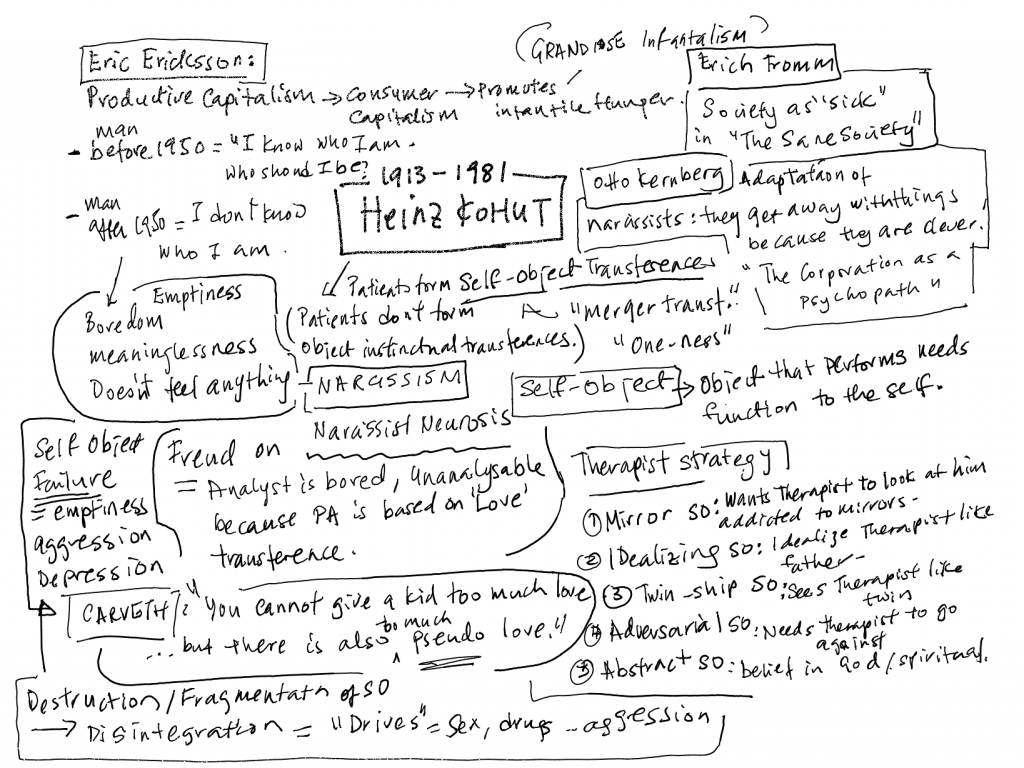 (GRANDIOSE Infantalism)
Eric Ericksson:
Productive Capitalism → Consumer Capitalism → Promotes infantile Hunger.
- man before 1950 = "I know who I am.
who should I be?
- man after 1950 = I don't know
who I am.
Emptiness
Boredom
meaninglessness
Doesn't feel anything
Erich Fromm
Society as "sick"
in "The Sane Society"
1913-1981
Heinz KOHUT
Otto Kernberg
Adaptation of
narassists: they get away with things
because they are clever.
"The Corporation as a
Psychopath"
Patients form Self-Object Transferences
(Patients don't form
object instinctual transferences.)
"merger transf."
"One-ness"
NARCISSISM
Self-Object → Object that performs needs
function to the self.
Self Object
Failure
= emptiness
aggression
Depression
Freud on Narassist Neurosis
= Analyst is bored, unanalysable
because PA is based on 'Love'
transference.
CARVETH: "You cannot give a kid too much love
... but there is also too much pseudo love."
Therapist strategy
① Mirror SO: Wants Therapist to look at him
addicted to mirrors -
② IDealizing SO: Idealize Therapist like
father -
③ Twin-ship SO: Sees Therapist like
twin
④ Adversarial SO: Needs therapist to go
against
⑤ Abstract SO: belief in God/spiritual.
Destruction/Fragmentatn of SO
→ Disintegration = "Drives" = Sex, drugs - aggression